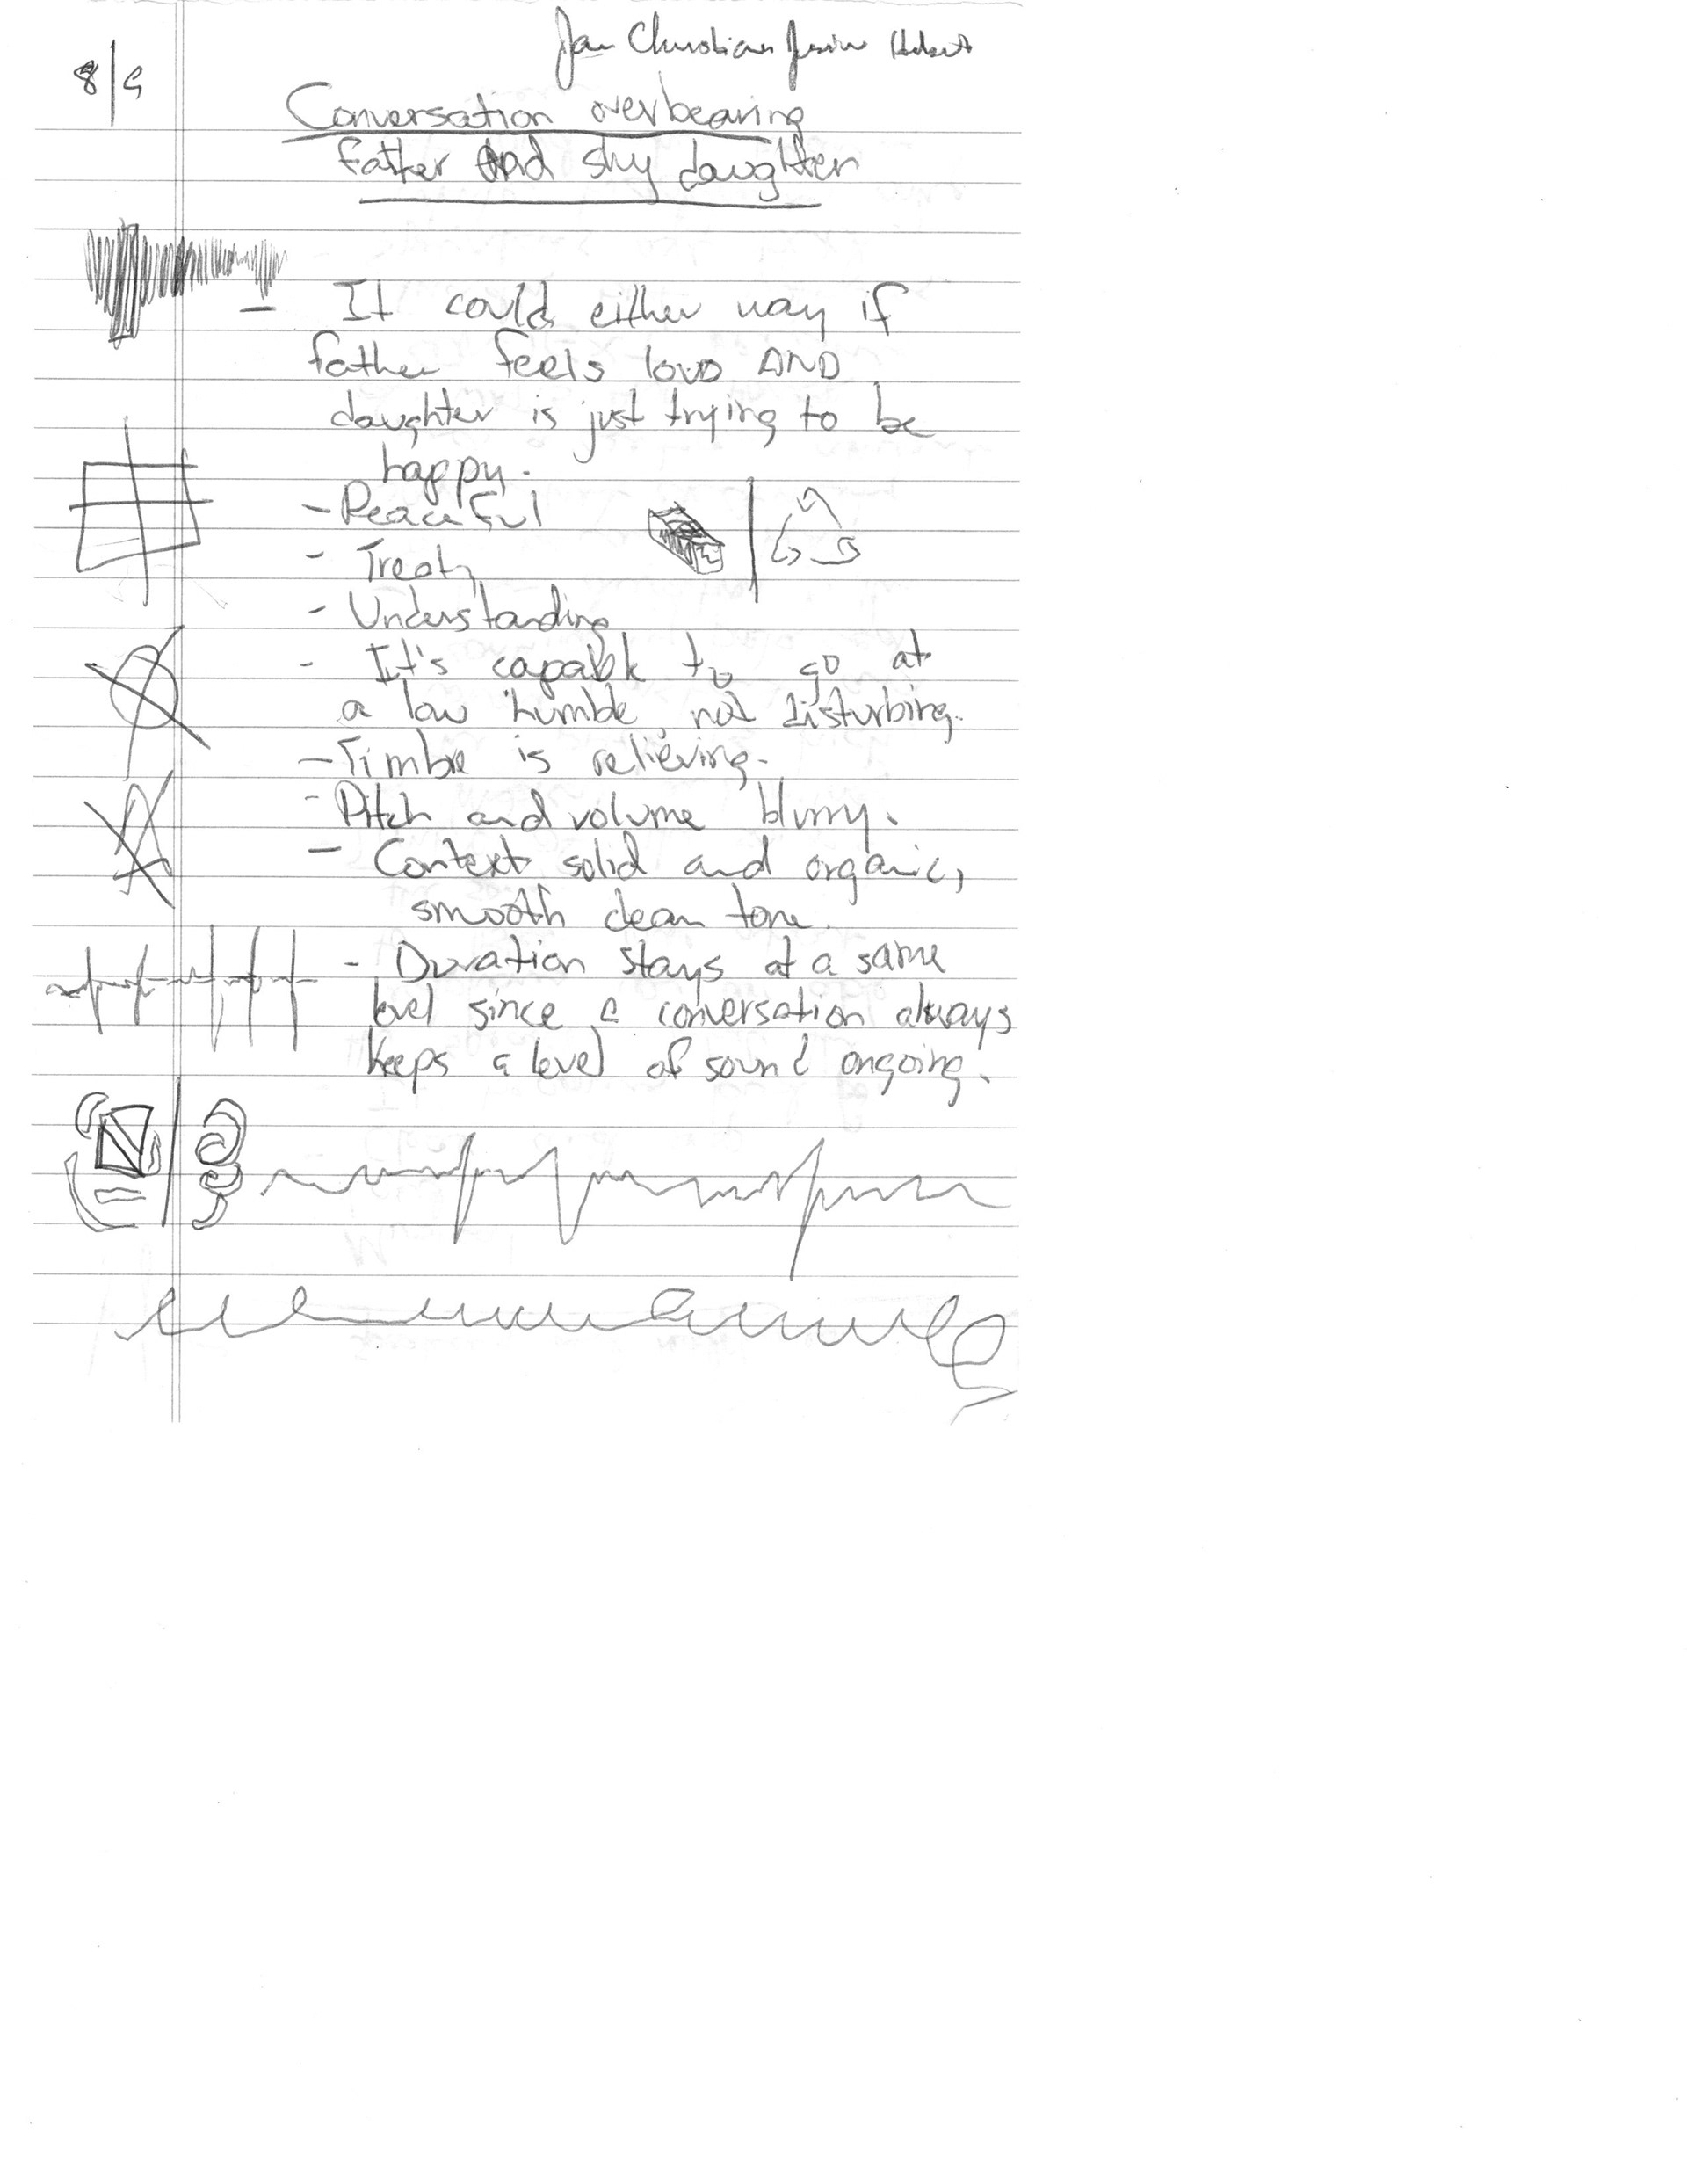 Jan Christian
8/9
Conversation overbearing
father and shy daughter
- It could either way if
father feels loud AND
daughter is just trying to be
happy.
- Peaceful
- Treaty
- Understanding
- It's capable to go at
a low humble, not disturbing.
- Timbre is relieving.
- Pitch and volume blurry.
- Context solid and organic,
smooth clean tone.
- Duration stays at a same
level since a conversation always
keeps a level of sound ongoing.